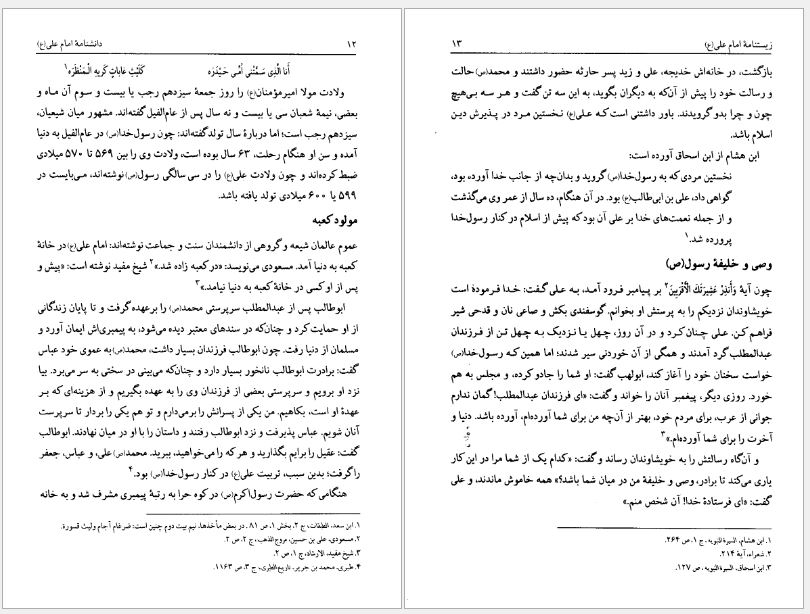 ۱۲ دانشنامهٔ امام علی(ع)
أَنا الَّذِي سَمَّتْنِي أُمِّي حَيْدَرَه كَلَيْثِ غاباتٍ كَرِيهِ الْمَنْظَرَه۱
ولادت مولا امیرمؤمنان(ع) را روز جمعهٔ سیزدهم رجب یا بیست و سوم آن ماه و
بعضی، نیمهٔ شعبان سی یا بیست و نه سال پس از عام‌الفیل گفته‌اند. مشهور میان شیعیان،
سیزدهم رجب است؛ اما دربارهٔ سال تولد گفته‌اند: چون رسول‌خدا(ص) در عام‌الفیل به دنیا
آمده و سن او هنگام رحلت، ۶۳ سال بوده است، ولادت وی را بین ۵۶۹ تا ۵۷۰ میلادی
ضبط کرده‌اند و چون ولادت علی(ع) را در سی سالگی رسول(ص) نوشته‌اند، می‌بایست در
۵۹۹ یا ۶۰۰ میلادی تولد یافته باشد.
مولود کعبه
عموم عالمان شیعه و گروهی از دانشمندان سنت و جماعت نوشته‌اند: امام علی(ع) در خانهٔ
کعبه به دنیا آمد. مسعودی می‌نویسد: «در کعبه زاده شد.»۲ شیخ مفید نوشته است: «پیش و
پس از او کسی در خانهٔ کعبه به دنیا نیامد.»۳
ابوطالب پس از عبدالمطلب سرپرستی محمد(ص) را برعهده گرفت و تا پایان زندگانی
از او حمایت کرد و چنان‌که در سندهای معتبر دیده می‌شود، به پیمبری‌اش ایمان آورد و
مسلمان از دنیا رفت. چون ابوطالب فرزندان بسیار داشت، محمد(ص) به عموی خود عباس
گفت: برادرت ابوطالب نانخور بسیار دارد و چنان‌که می‌بینی در سختی به سر می‌برد. بیا
نزد او برویم و سرپرستی بعضی از فرزندان وی را به عهده بگیریم و از هزینه‌ای که بر
عهدهٔ او است، بکاهیم. من یکی از پسرانش را برمی‌دارم و تو هم یکی را بردار تا سرپرست
آنان شویم. عباس پذیرفت و نزد ابوطالب رفتند و داستان را با او در میان نهادند. ابوطالب
گفت: عقیل را برایم بگذارید و هر که را می‌خواهید، ببرید. محمد(ص) علی، و عباس، جعفر
را گرفت؛ بدین سبب، تربیت علی(ع) در کنار رسول‌خدا(ص) بود.۴
هنگامی که حضرت رسول‌اکرم(ص) در کوه حرا به رتبهٔ پیمبری مشرف شد و به خانه
۱. ابن سعد، الطبقات، ج ۲، بخش ۱، ص ۸۱. در بعض مأخذها، نیم بیت دوم چنین است: ضرغام آجام ولیث قسورة.
۲. مسعودی، علی بن حسین، مروج الذهب، ج ۲، ص ۲.
۳. شیخ مفید، الارشاد، ج ۱، ص ۲.
۴. طبری، محمد بن جریر، تاریخ الطبری، ج ۳، ص ۱۱۶۳.
زیستنامهٔ امام علی(ع) ۱۳
بازگشت، در خانه‌اش خدیجه، علی و زید پسر حارثه حضور داشتند و محمد(ص) حالت
و رسالت خود را پیش از آن‌که به دیگران بگوید، به این سه تن گفت و هر سه بی‌هیچ
چون و چرا بدو گرویدند. باور داشتنی است که علی(ع) نخستین مرد در پذیرش دین
اسلام باشد.
ابن هشام از ابن اسحاق آورده است:
نخستین مردی که به رسول‌خدا(ص) گروید و بدان‌چه از جانب خدا آورده بود،
گواهی داد، علی بن ابی‌طالب(ع) بود. در آن هنگام، ده سال از عمر وی می‌گذشت
و از جمله نعمت‌های خدا بر علی آن بود که پیش از اسلام در کنار رسول‌خدا
پرورده شد.۱
وصی و خلیفهٔ رسول(ص)
چون آیهٔ وَأَنذِرْ عَشِيرَتَكَ الْأَقْرَبِينَ۲ بر پیامبر فرود آمد، به علی گفت: خدا فرموده است
خویشاوندان نزدیکم را به پرستش او بخوانم. گوسفندی بکش و صاعی نان و قدحی شیر
فراهم کن. علی چنان کرد و در آن روز، چهل یا نزدیک به چهل تن از فرزندان
عبدالمطلب گرد آمدند و همگی از آن خوردنی سیر شدند؛ اما همین که رسول‌خدا(ص)
خواست سخنان خود را آغاز کند، ابولهب گفت: او شما را جادو کرده، و مجلس به هم
خورد. روزی دیگر، پیغمبر آنان را خواند و گفت: «ای فرزندان عبدالمطلب! گمان ندارم
جوانی از عرب، برای مردم خود، بهتر از آن‌چه من برای شما آورده‌ام، آورده باشد. دنیا و
آخرت را برای شما آورده‌ام.»۳
و آن‌گاه رسالتش را به خویشاوندان رساند و گفت: «کدام یک از شما مرا در این کار
یاری می‌کند تا برادر، وصی و خلیفهٔ من در میان شما باشد؟» همه خاموش ماندند، و علی
گفت: «ای فرستادهٔ خدا! آن شخص منم.»
۱. ابن هشام، السیرة النبویه، ج ۱، ص ۲۶۴.
۲. شعراء، آیهٔ ۲۱۴.
۳. ابن اسحاق، السیرة النبویه، ص ۱۲۷.